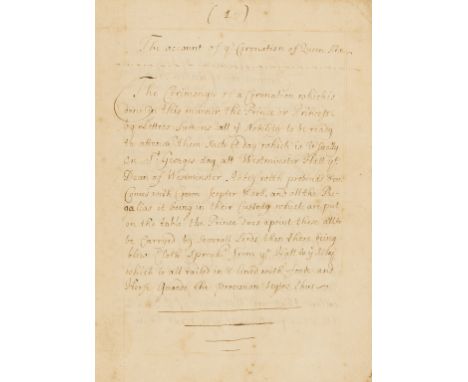 ( 1 )
The account of y Coronation of Queen Ann
The Ceremony of a Coronation which is
don In this manner the Prince or Princess
by Letters Sumons all y Nobility to be ready
to attend them Such A day which is Usually
on St Georges day att Westminster Hall ye
Dean of Westminster Abby with
Comes with Crown Scepter and all the Re
galias it being in their Custody which are put
on the table the Prince does apoint these all to
be Carryed by Severall Lords then there being
blew Cloth Spread from ye Hall to ye Abby
which is all railed in & lined with foote and
Horse Guards the procession begins thus